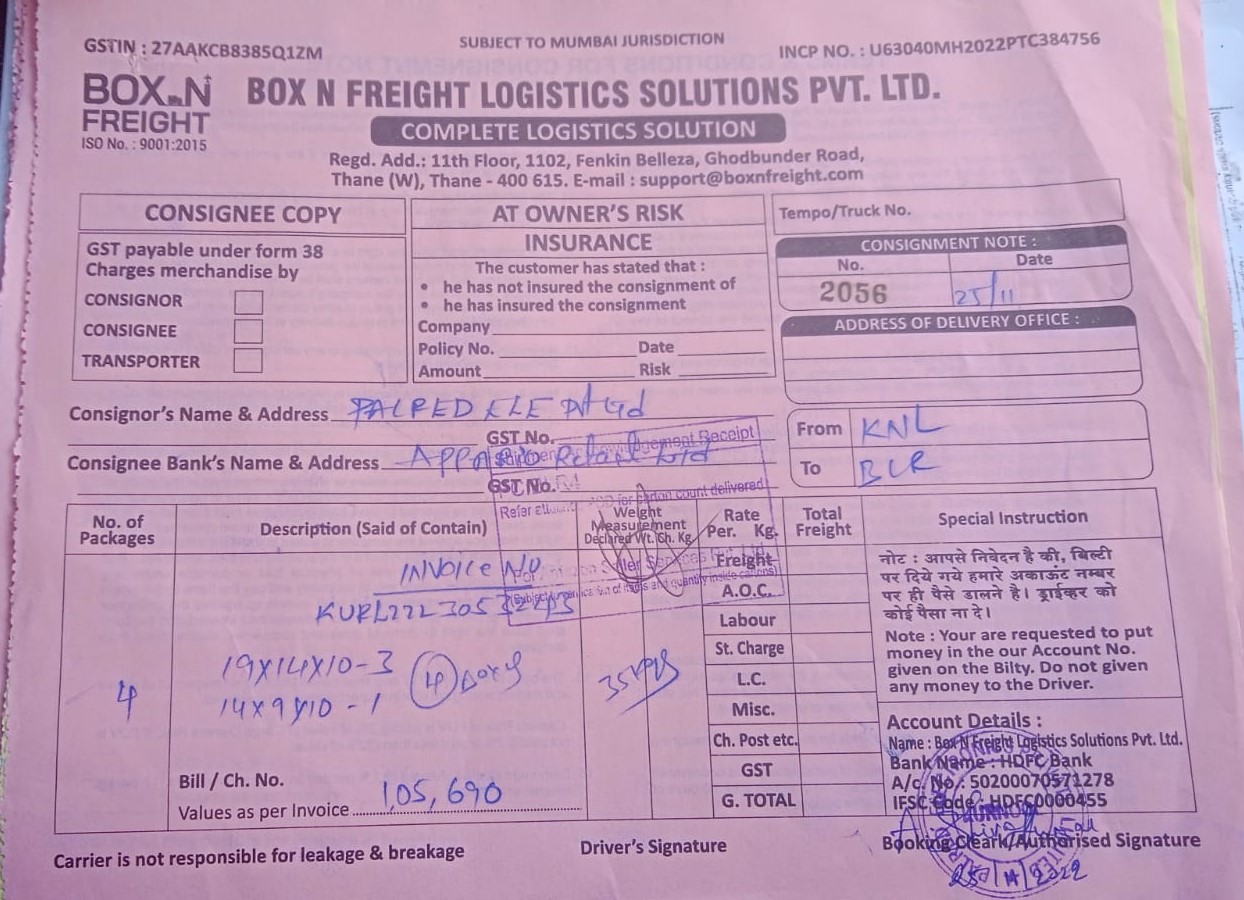 GSTIN : 27AAKCB8385Q1ZM
SUBJECT TO MUMBAI JURISDICTION
INCP NO. : U63040MH2022PTC384756
BOX N FREIGHT
ISO No. : 9001:2015
BOX N FREIGHT LOGISTICS SOLUTIONS PVT. LTD.
COMPLETE LOGISTICS SOLUTION
Regd. Add.: 11th Floor, 1102, Fenkin Belleza, Ghodbunder Road,
Thane (W), Thane - 400 615. E-mail : support@boxnfreight.com
CONSIGNEE COPY
GST payable under form 38
Charges merchandise by
CONSIGNOR
CONSIGNEE
TRANSPORTER
AT OWNER'S RISK
INSURANCE
The customer has stated that :
• he has not insured the consignment of
• he has insured the consignment
Company
Policy No. Date
Amount Risk
Tempo/Truck No.
CONSIGNMENT NOTE :
No. Date
2056 25/11
ADDRESS OF DELIVERY OFFICE :
Consignor's Name & Address PALRED ELE Pvt Ltd
GST No.
Consignee Bank's Name & Address APPARIO Retail Ltd
GST No.
From KNL
To BLR
Acknowledgement Receipt
for carton count delivered
Seller Services
and quantity inside cartons)
No. of Packages
Description (Said of Contain)
Weight Measurement Declared Wt. Ch. Kg.
Rate Per. Kg.
Total Freight
Special Instruction
INVOICE NO
4
19X14X10-3
14X9X10-1
4 Boxes
35 kgs
Bill / Ch. No.
Values as per Invoice 1,05,690
Freight
A.O.C.
Labour
St. Charge
L.C.
Misc.
Ch. Post etc.
GST
G. TOTAL
नोट : आपसे निवेदन है की, बिल्टी
पर दिये गये हमारे अकाऊंट नम्बर
पर ही पैसे डालने है। ड्राईव्हर को
कोई पैसा ना दे।
Note : Your are requested to put
money in the our Account No.
given on the Bilty. Do not given
any money to the Driver.
Account Details :
Name : Box N Freight Logistics Solutions Pvt. Ltd.
Bank Name : HDFC Bank
A/c. No. : 50200070571278
IFSC Code : HDFC0000455
Carrier is not responsible for leakage & breakage
Driver's Signature
Booking Cleark/Authorised Signature
25/11/2022